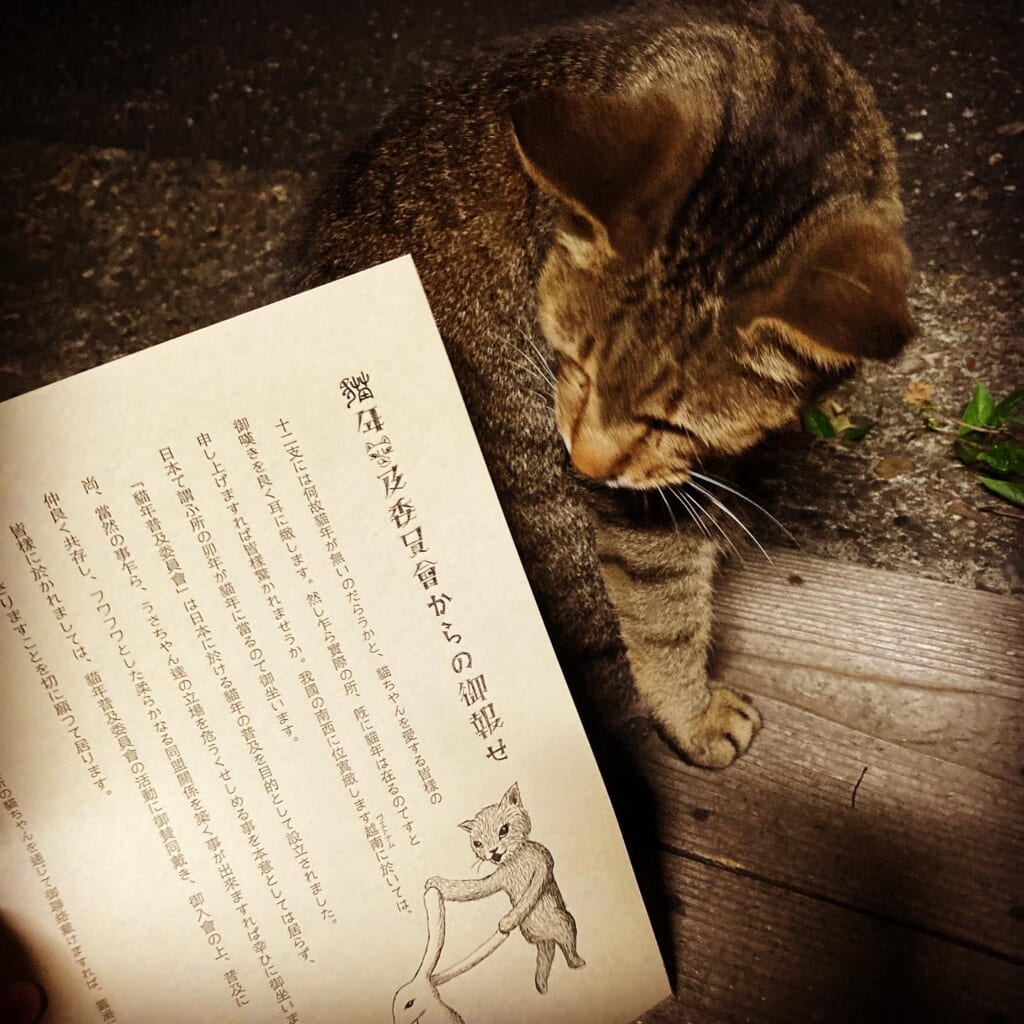 貓年及委員會からの御報せ
十二支には何故貓年が無いのだらうかと、貓ちゃんを愛する皆様の
御嘆きを良く耳に緻します。然し乍ら實際の所、既に貓年は在るのですと
申し上げますれば皆様驚かれませうか。我國の南西に位實緻します越南に於いては、
ヴィトナム
日本で謂ふ所の卯年が貓年に當るので御坐います。
「貓年普及委員會」は日本に於ける貓年の普及を目的として設立されました。
尚、當然の事乍ら、うさちゃん達の立場を危うくせしめる事を本意としては居らず、
仲良く共存し、フワフワとした柔らかなる同盟關係を築く事が出来ますれば幸ひに御坐いま
皆様に於かれましては、貓年普及委員會の活動に御賛同戴き、御入會の上、普及に
さりますことを切に願つて居ります。
の貓ちゃんを通じて御聯絡戴けますれば、